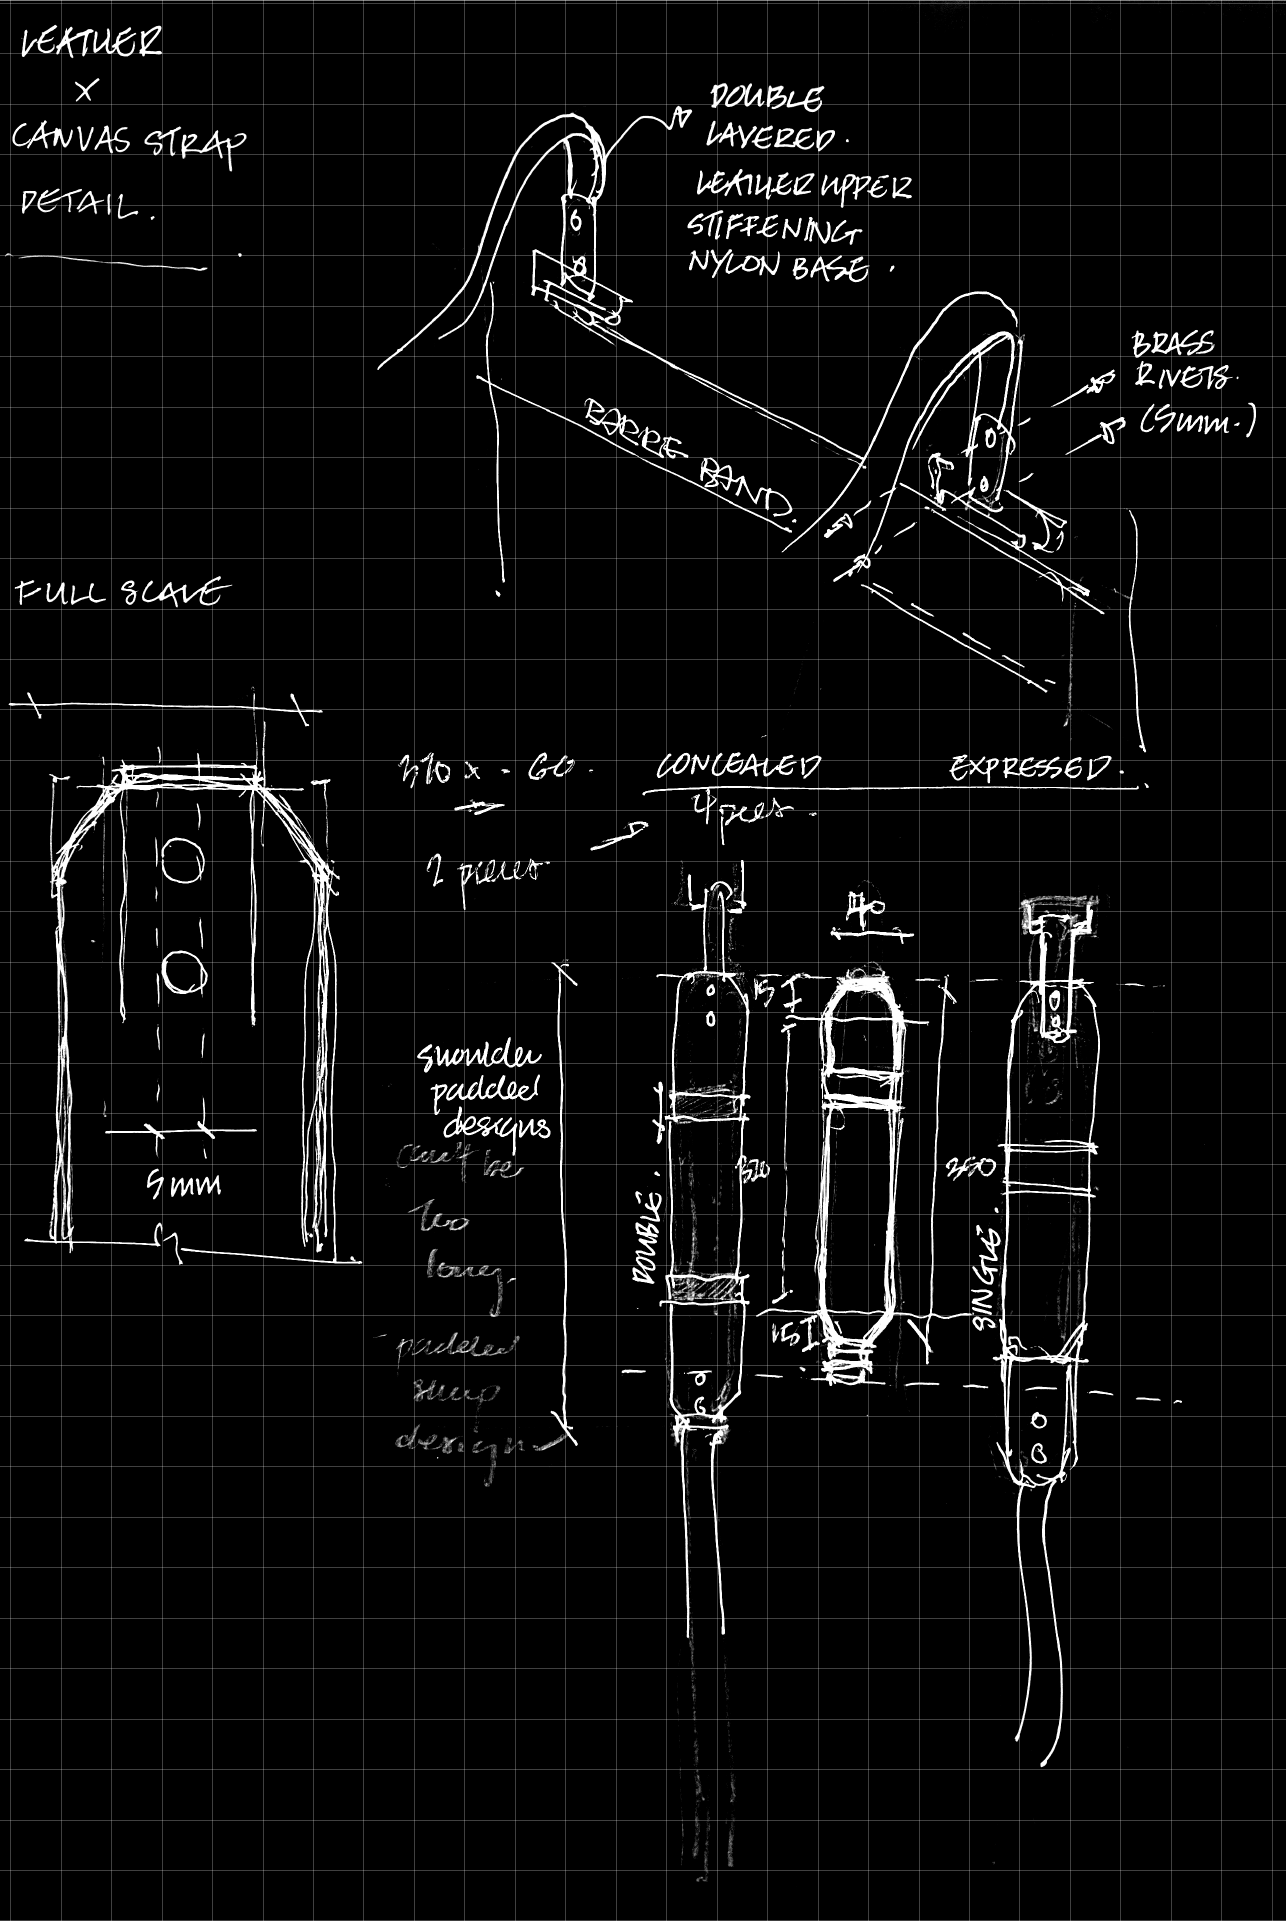 LEATHER
X
CANVAS STRAP
DETAIL.
DOUBLE
LAYERED.
LEATHER UPPER
STIFFENING
NYLON BASE.
BRASS
RIVETS.
(5mm.)
BARRE BAND.
FULL SCALE
370 x - 60.
2 pieces
CONCEALED
4 pces.
EXPRESSED.
40
15
shoulder
padded
designs
can't be
too
long.
padded
strap
design
5mm
DOUBLE.
320
350
SINGLE.
15